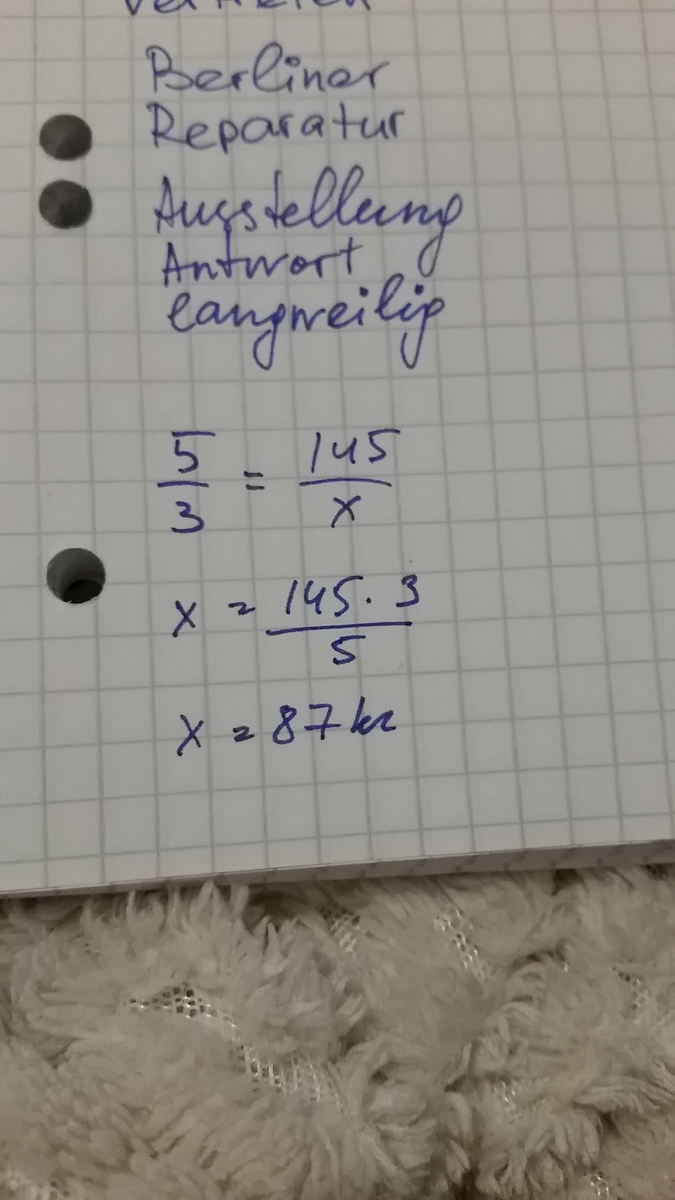 Berliner
Reparatur
Ausstellung
Antwort
langweilig
5/3 = 145/x
x = 145 · 3/5
x = 87 kr